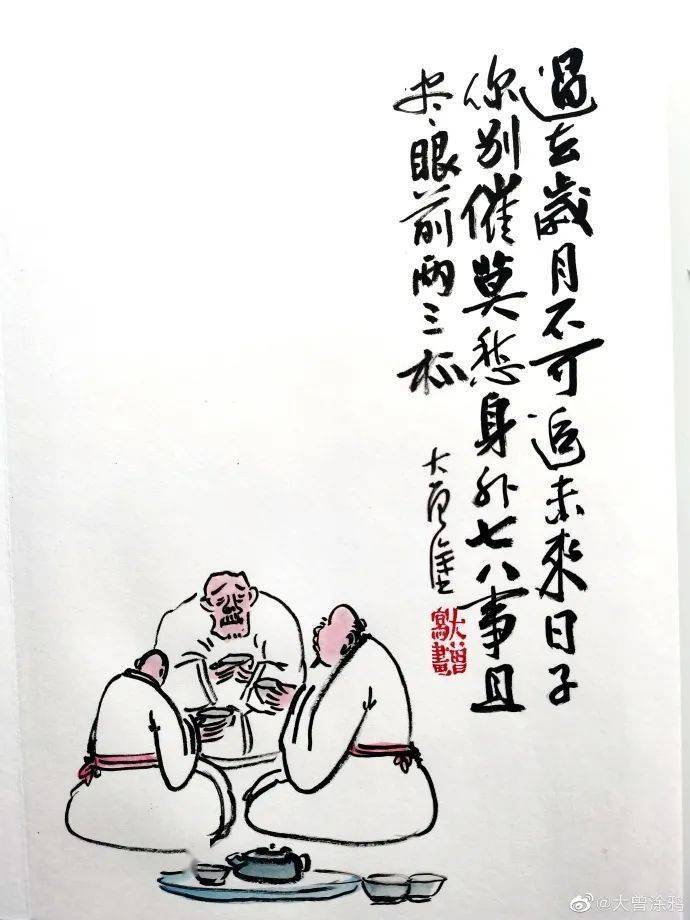 過去歲月不可追未來日子
你別催莫愁身外七八事且
盡眼前兩三杯
大曾塗
大曾寫畫
@大曾涂鸦